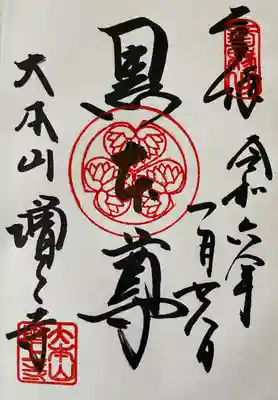 奉拝
令和六年
一月廿八日
黒本尊
大本山 増上寺